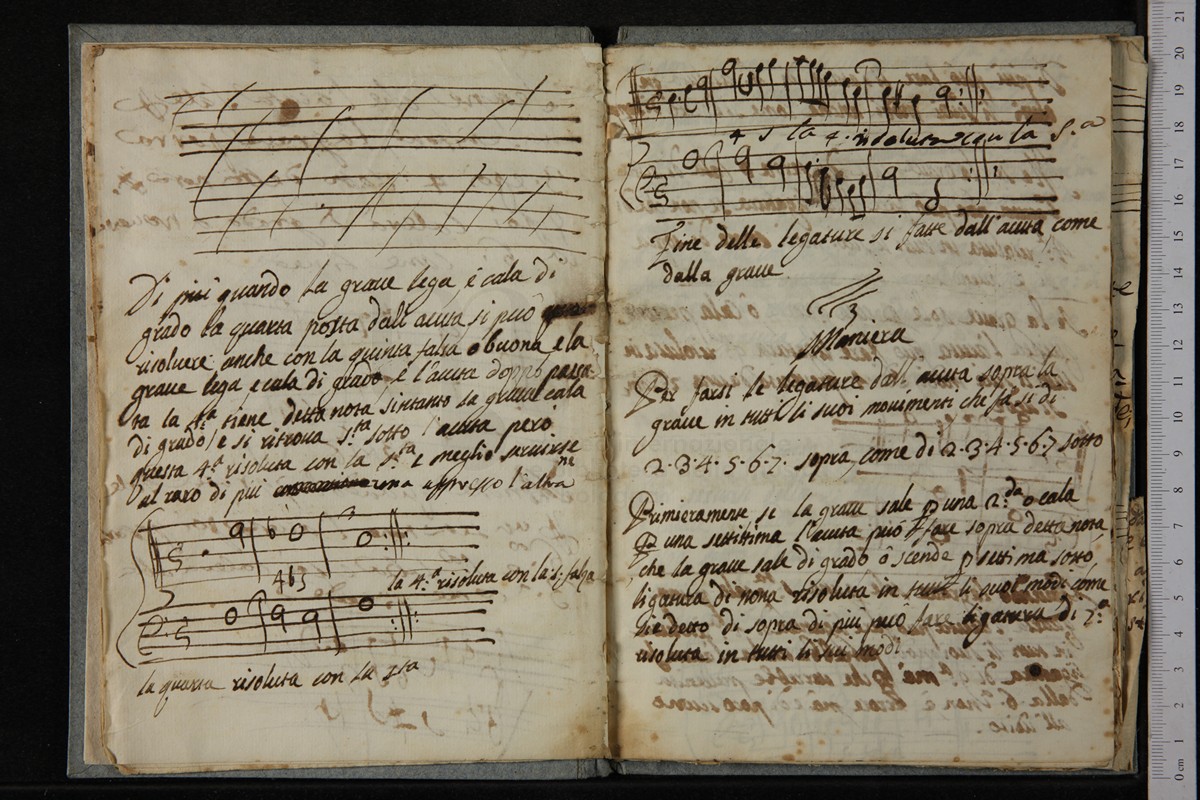 Di più quando la grave lega é cala di
grado la quarta posta dall' acuta si può
risolvere anche con la quinta falsa o buona e la
grave lega e cala di grado, e l'acuta doppò passa
ta la 4.ª tiene detta nota sintanto la grave cala
di grado, e si ritrova 5.ta sotto l'acuta però
questa 4.ª risoluta con la 5.ta è meglio servirse
ne
al raro di più una appresso l'altra
4 b5
la 4.ª risoluta con la 5. falza
la quarta risoluta con la 5ta
4 5 la 4. risoluta con la 5.a
Fine delle legature si fatte dall'acuta, come
dalla grave
3.
Maniera
Per farsi le legature dall' acuta sopra la
grave in tutti li suoi movimenti che fà si di
2. 3. 4. 5. 6. 7. sopra, come di 2. 3. 4. 5. 6. 7 sotto
Primieramente se la grave sale p una 2.da o cala
p una settittima l'acuta può fare sopra detta nota,
che la grave sale di grado ò scende p settima sotto,
ligatura di nona risoluta in tutti li suoi modi come
sie detto di sopra di più può fare ligatura di 7.ª
risoluta in tutti li sui modi